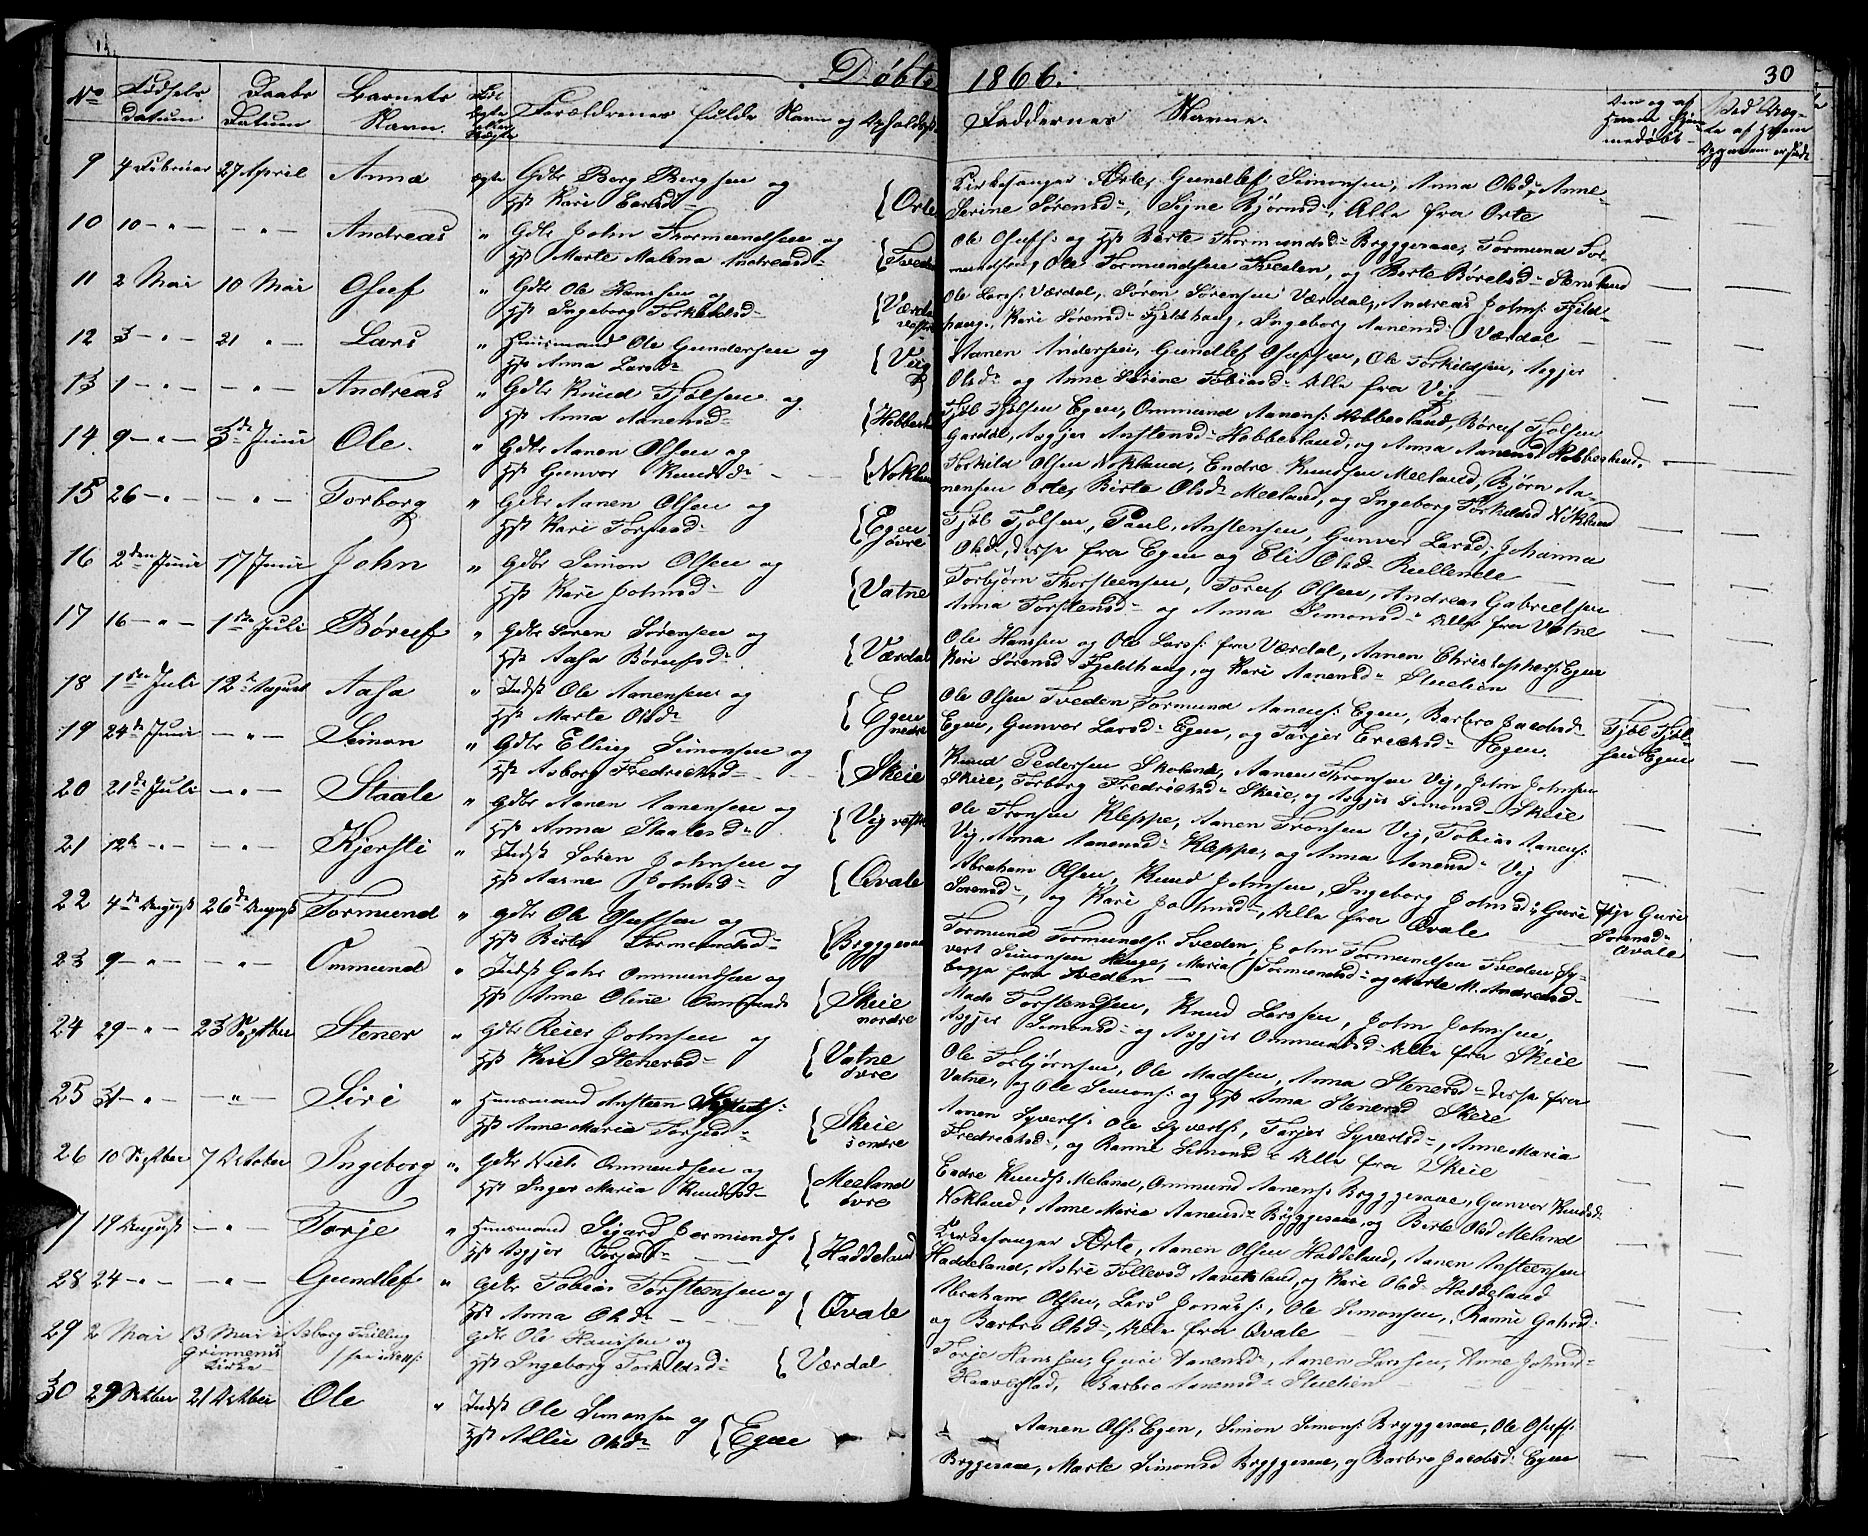 Døbte 1866. 30
No Fødsels Datum Daabs Datum Barnets Navn. Forældrenes fulde Navn og Opholdsst Faddernes Navne.
9 4 Februar 27 April Anna ægte Gdbr Berg Bergsen og
Hst Kari { Orte
Kirkesanger Ørte, Gundlef Simonsen, Anna Olsd:, Anne
Serine Sørensd:, Signe Bjørnsd:, Alle fra Orte
10 10 - " - - " - Andreas " Gdbr John Thormundsen og
Hst Marte Malena Andreasd: { Tveden
Ole Osufs: og Hst Berte Thormundsd: Bryggesaae, Tormund Tor-
mundsen, Ole Tormundsen Tveden, og Berte Børelsd: Stensland
11 2 Mai 10 Mai Osuf " Gdbr Ole Hanssen og
Hst Ingeborg Torkildsd: { Værdal
Ole Larss: Værdal, Søren Sørensen Værdal, Andreas Johns: Fjeld-
haug, Kari Sørensd: Fjeldhaug, Ingeborg Aanensd: Værdal
12 3 - " - 21 " - Lars " Huusmand Ole Gundersen og
Hst Anna Larsd: { Veig
Aanen Andersen, Gundlef Osufsen, Ole Torkildsen, Asgjer
Olsd: og Anne Serine Tobiasd: Alle fra Vig
13 1 - " - - " - Andreas " Gdbr Knud Fjølsen og
Hst Anna Aanensd: { Hobbesland
Tjøl Tjølsen Egen, Ommund Aanens: Hobbesland, Børuf Tjølsen
Gardal, Asgjer Anstensd: Hobbesland, og Anna Aanensd Hobbesland.
14 9 - " - 3de Juni Ole. " Gdbr Aanen Olsen og
Hst Gunvor Knudsd: { Nokland
Torkild Olsen Nokland, Endre Knudsen Meeland, Bjørn Aa-
nensen Orte, Birte Olsd: Meeland, og Ingeborg Torkildsd Nokland
15 26 - " - - " - Torborg " Gdbr Aanen Olsen og
Hst Kari Torjusd: { Egen øvre
Tjøl Tjølsen, Paul Anstensen, Gunvor Larsd:, Johanna
Olsd:, disse fra Egen og Eli Olsd:
16 2den Juni 17 Juni John " Gdbr Simon Olsen og
Hst Kari Johnsd: { Vatne
Torbjørn Thorsteensen, Toruf Olsen, Andreas Gabrielsen
Anna Torstensd: og Anna Simonsd: Alle fra Vatne
17 16 - " - 1ste Juli Børuf " Gdbr Søren Sørensen og
Hst Aasa Børufsd: { Værdal
Ole Hanssen og Ole Larss: fra Værdal, Aanen Christophers: Egen
Kari Sørensd: Fjeldhaug, og Kari Aanensd: Stulien
18 1ste Juli 12te August Aasa " Indst Ole Aanensen og
Hst Marte Olsd: { Egen nedre
Ole Olsen Tveden Tormund Aanens: Egen, Barbro Jacobsd:
Egen, Gunvor Larsd: Egen, og Tarjer Erichsd: Egen.
Tjøl Tjøl-
sen Egen
19 24de Juni - " - Simon " Gdbr Elling Simonsen og
Hst Asborg Fredrichsd: { Skeie
Knud Pedersen Skoland, Aanen Thronsen Vig, John Johnsen
Skeie, Torborg Fredrichsd: Skeie, og Asgjer Simonsd: Skeie
20 21de Juli - " - Staale " Gdbr Aanen Aanensen og
Hst Anna Staalesd: { Vig vestre
Ole Tronsen Kleppe, Aanen Tronsen Vig, Tobias Aanens:
Vig, Anna Aanensd: Kleppe, og Anna Aanensd: Vig
21 12te - " - - " - Kjersti " Indst Søren Johnsen og
Hst Aasne Johnsd: { Qvale
Abraham Olsen, Knud Johnsen, Ingeborg Johnsd:, Guri
Sørensd:, og Kari Johnsd:, Alle fra Qvale
Pige Guri
Sørensd:
Qvale
22 4de August 26de August Tormund " Gdbr Ole Osufsen og
Hst Birte Tormundsd: { Bryggesaae
Tormund Tormunds: Tveden, John Tormundsen Tveden, Sy-
vert Simonsen Houge, Maria Tormundsd: og Marte M. Andreasd:
begge fra Tveden
23 9 - " - - " - Ommund " Indst Gahr Ommundsen og
Hst Anne Oline { Skeie nordre
Mads Torstensen, Knud Larssen, John Johnsen,
Asgjer Simonsd: og Asgjer Ommundsd: Alle fra Skeie
24 29 - " - 23 Septber Stener " Gdbr Reier Johnsen og
Hst Kari Stenersd: { Vatne øvre
Ole Torbjørnsen, Ole Madsen, Anna Stenersd: disse fra
Vatne, og Ole Simons: og Hst Anna Stenersd Skeie
25 31 - " - - " - Siri " Huusmand Ansteen
Hst Anne Maria Torjusd: { Skeie søndre
Aanen Syverts: Ole Syverts:, Tarjer Syvertsd:, Anne Maria
Fredrichsd:, og Ranni Simonsd: Alle fra Skeie
26 10 Septber 7 October Ingeborg " Gdbr Niels Ommundsen og
Hst Inger Maria Knudsd: { Meeland øvre
Endre Knuds: Meland, Ommund Aanens: Bryggesaae, Gunvor Knudsd:
Nokland, Anne Maria Aanensd: Bryggesaae, og Berte Olsd Meland
7 19 August - " - Torje " Huusmand Sigard Germunds:
Hst Asgjer Torjusd: { Haddeland
Kirkesanger Ørte, Aanen Olsen Haddeland, Aanen Ansteensen
Haddeland, Astri Tollevsd Aavitsland, og Kari Olsd: Haddeland
28 24 - " - - " - Gundlef " Gdbr Tobias Torsteensen og
Hst Anna Olsd: { Qvale
Abraham Olsen, Lars Jonass:, Ole Simonsen, Ranni Gahrsd:
og Barbro Olsd:, Alle fra Qvale
29 2 Mai 13 Mai i Grinnems Kirke Asborg Tvilling Gdbr Ole Hanssen og
Hst Ingeborg Torkildsd: { Værdal
Torje Hanssen, Guri Aanensd:, Aanen Larssen, Anne Johnsd:
Haavestad, Barbro Aanensd: Stulien
30 29 Septber 21 October Ole " Indst Ole Simonsen og
Hst Allie Olsd: { Egen
Aanen Ols: Egen, Simon Simons: Bryggesaae, Ole Osufs:
Bryggesaae, Marte Simonsd Bryggesaae, og Barbro Jacobsd: Egen